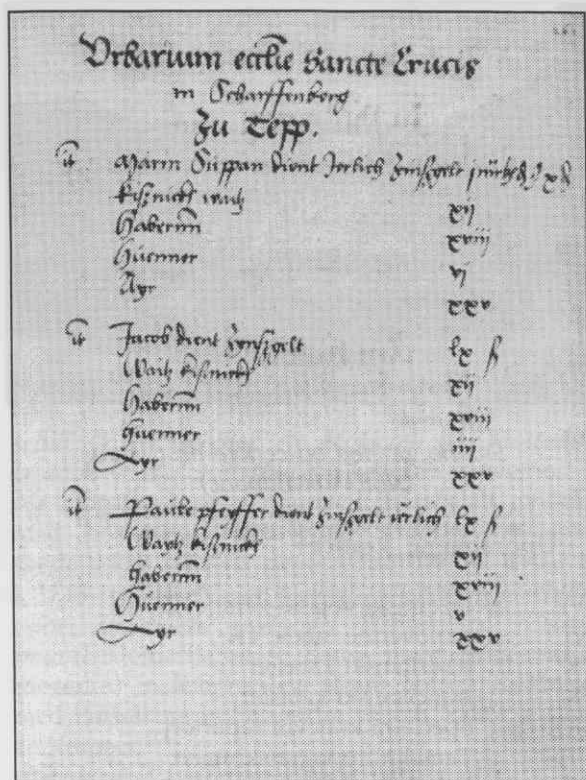 Vrbarium ecclie Sancte Crucis
in Scharffenberg
Zu Tepp.
it Marin Suppan dient Jerlich Zinsgelt
kisznickh waitz xij
Habernn xviij
Hüenner vj
Ayr xxv
it Jacob dient Zynszgelt lx
Waitz kisnickh xij
Habernn xviij
Huenner iiij
Ayr xxv
it Paule pfeyffer dient Zinszgelt ierlich lx
Waytz kisnickh xij
Habernn xviij
Hüenner v
Ayr xxv